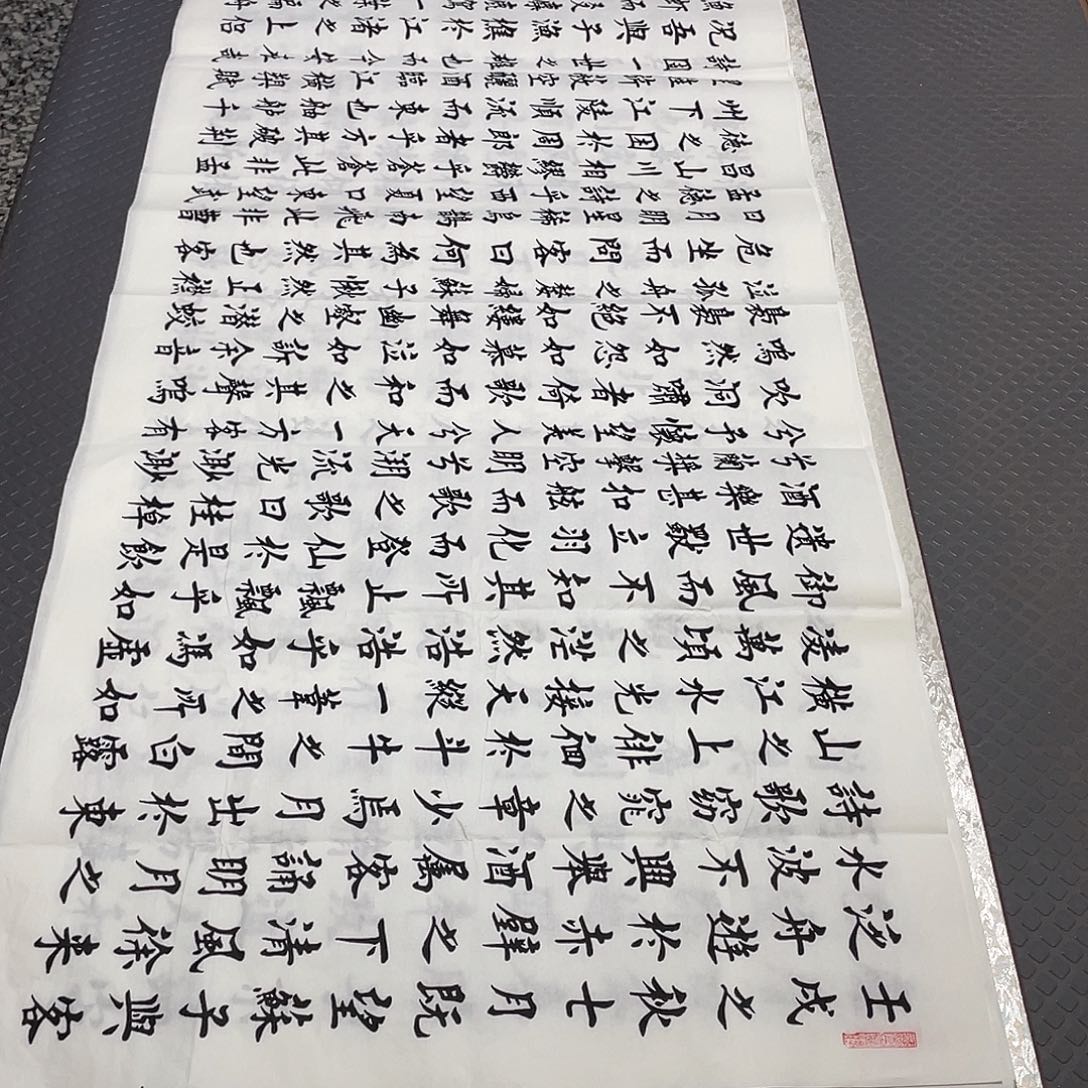 壬戌之秋七月既望蘇子與客
泛舟遊於赤壁之下清風徐來
水波不興舉酒屬客誦明月之
詩歌窈窕之章少焉月出於東
山之上徘徊於斗牛之間白露
橫江水光接天縱一葦之所如
凌萬頃之茫然浩浩乎如馮虛
御風而不知其所止飄飄乎如
遺世獨立羽化而登仙於是飲
酒樂甚扣舷而歌之歌曰桂棹
兮蘭槳擊空明兮溯流光渺渺
兮予懷望美人兮天一方客有
吹洞簫者倚歌而和之其聲嗚
嗚然如怨如慕如泣如訴余音
裊裊不絕如縷舞幽壑之潛蛟
泣孤舟之嫠婦蘇子愀然正襟
危坐而問客曰何為其然也客
曰月明星稀烏鵲南飛此非曹
孟德之詩乎西望夏口東望武
昌山川相繆鬱乎蒼蒼此非孟
德之困於周郎者乎方其破荊
州下江陵順流而東也舳艫千
里旌旗蔽空釃酒臨江橫槊賦
詩固一世之雄也而今安在哉
況吾與子漁樵於江渚之上侶